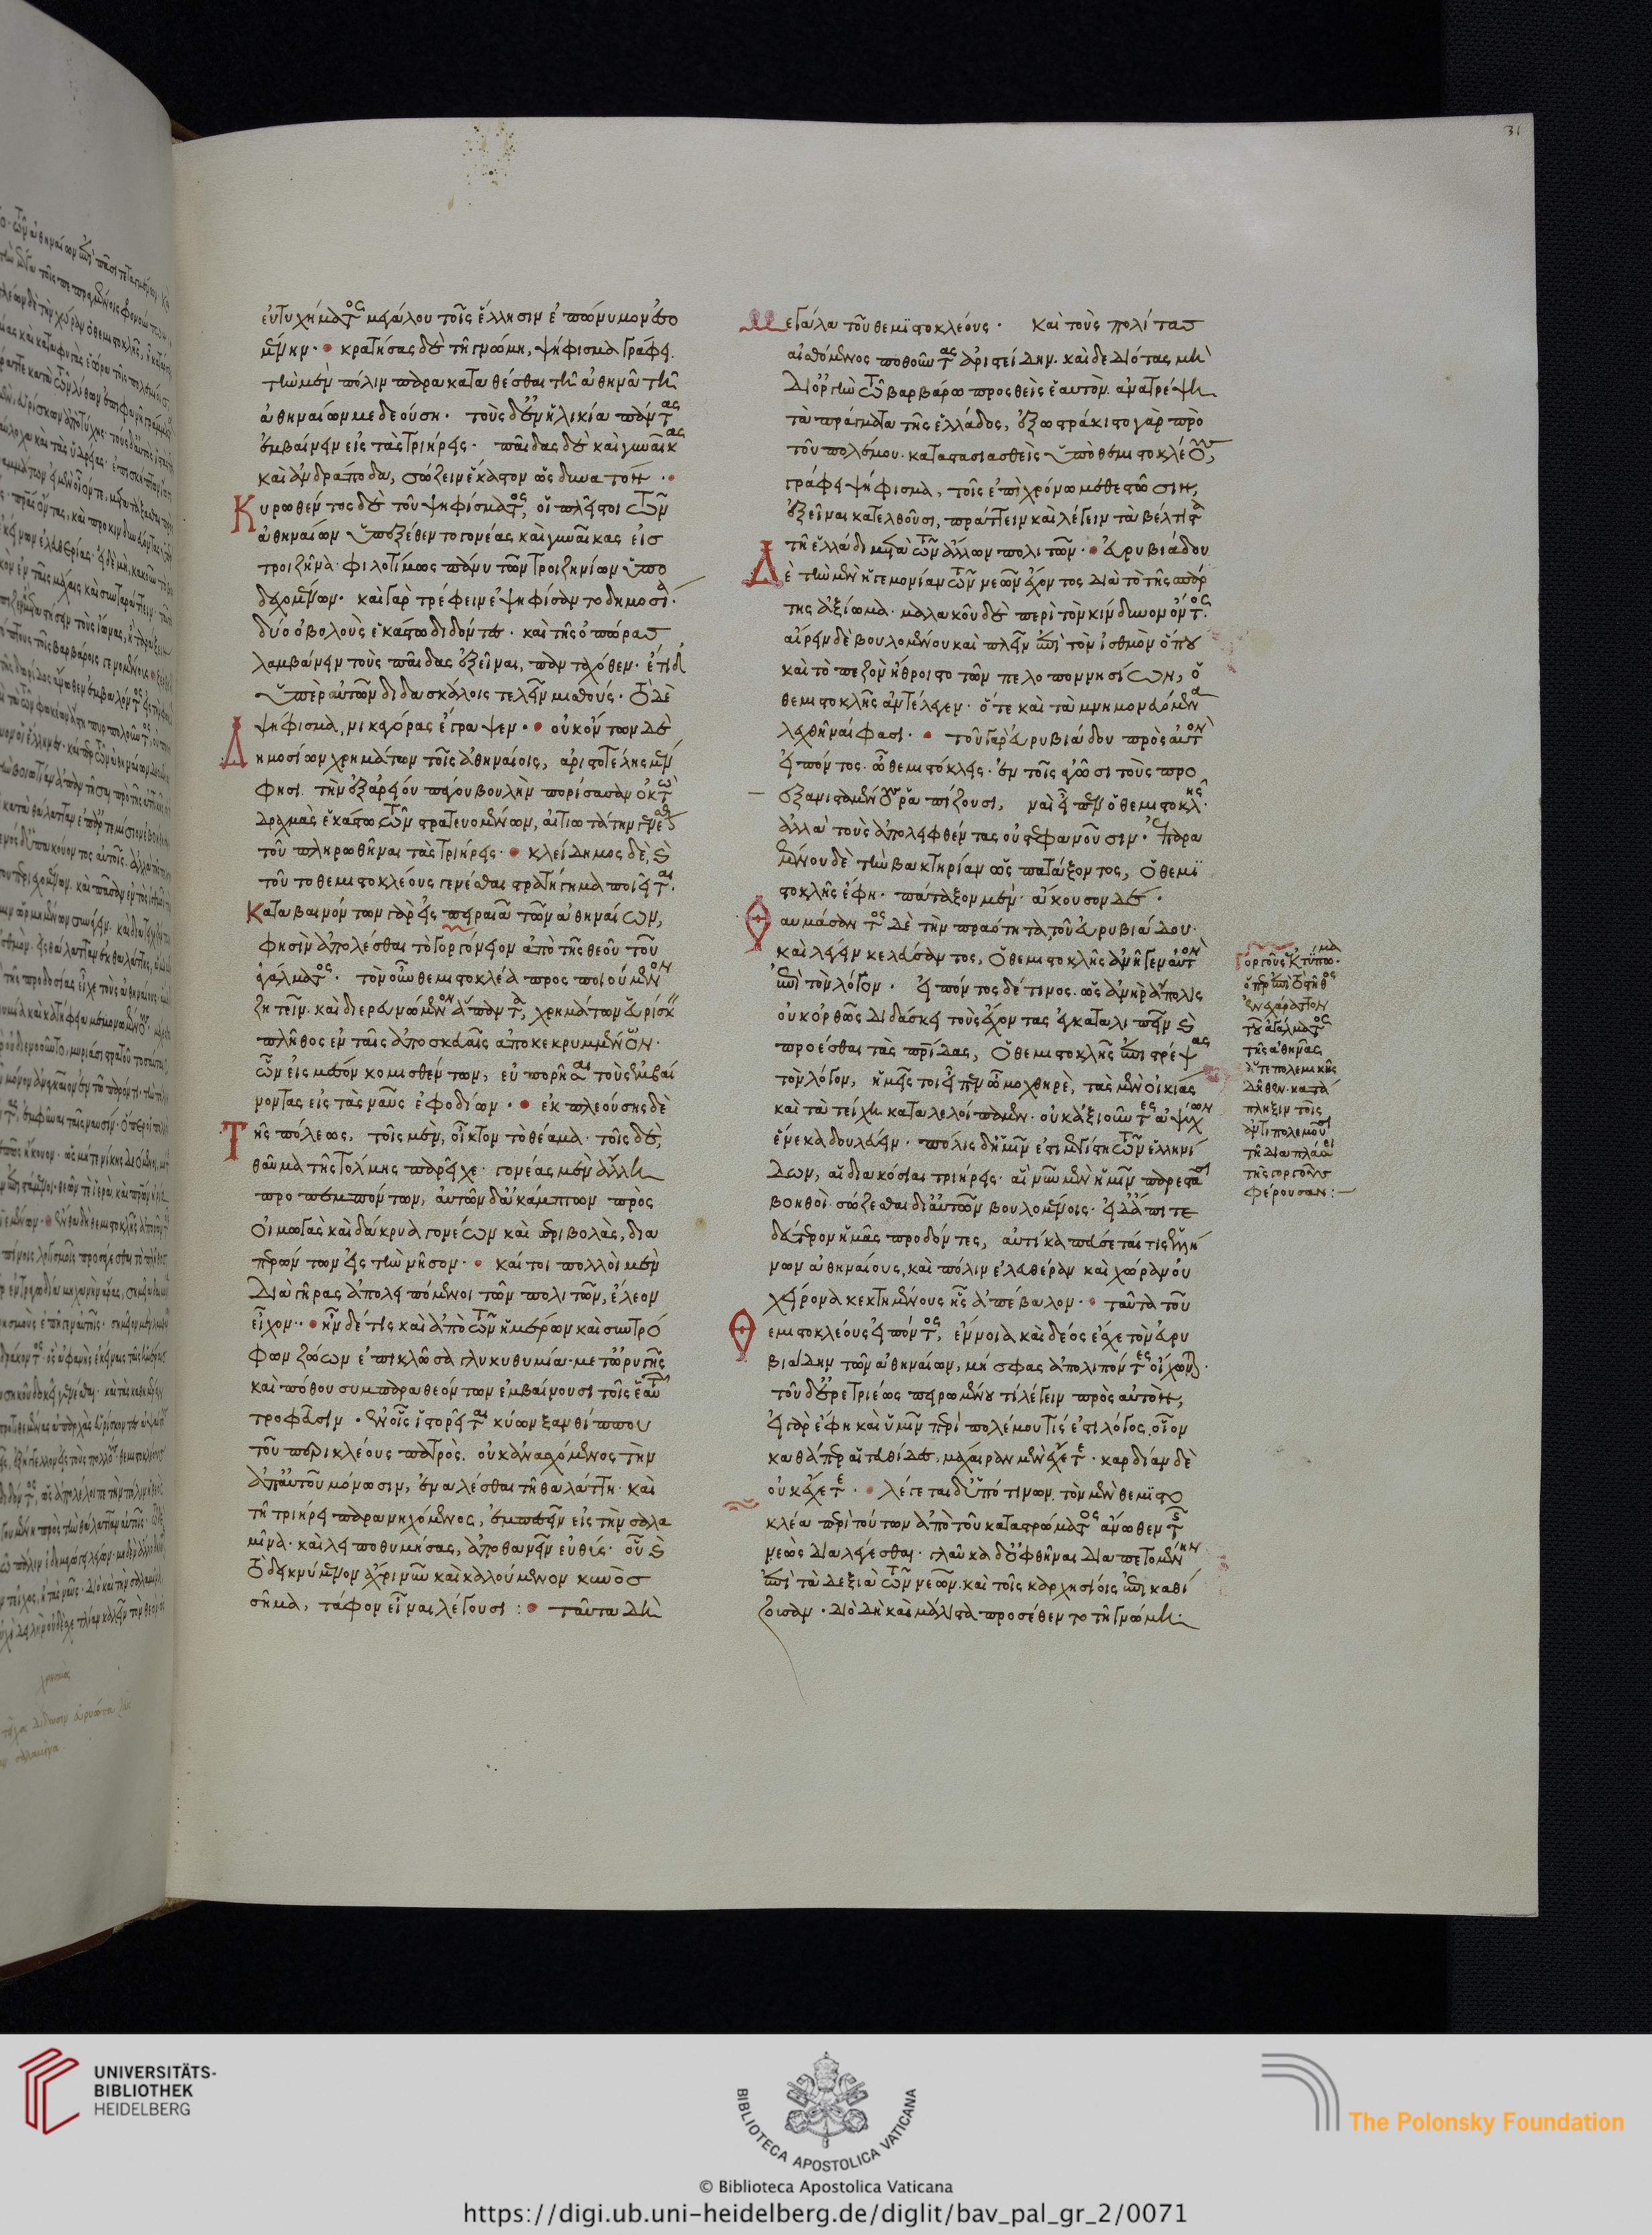 εὐτυχήματος μεγάλου τοῖς ἕλλησιν ἐπώνυμον ἀπο
μένην · κρατήσας δὲ τῇ γνώμη, ψήφισμα γράφει
τὴν μὲν πόλιν παρακαταθέσθαι τῆ ἀθηνᾶ τῆ
ἀθηναίων μεδεούση · τοὺς δ' ἐν ἡλικία πάντας
ἐμβαίνειν εἰς τὰς τριήρεις · παῖδας δὲ καὶ γυναῖκας
καὶ ἀνδράποδα, σώζειν ἕκαστον ὡς δυνατόν ·
Κυρωθέντος δὲ τοῦ ψηφίσματος, οἱ πλεῖστοι τῶν
ἀθηναίων ὑπεξέθεντο γονέας καὶ γυναῖκας εἰσ
τροιζῆνα· φιλοτίμως πάνυ τῶν τροιζηνίων ὑπο
δεχομένων · καὶ γὰρ τρέφειν ἐψηφίσαντο δημοσία·
δύο ὀβολοὺς ἑκάστω διδόντες · καὶ τῆς ὀπώρασ
λαμβάνειν τοὺς παῖδας ἐξεῖναι, πανταχόθεν· ἔτι δ'
ὑπὲρ αὐτῶν διδασκάλοις τελεῖν μισθούς · τὸ δὲ
ψήφισμα, νικαγόρας ἔγραψεν · οὐκ ὄντων δὲ
Δημοσίων χρημάτων τοῖς ἀθηναίοις, ἀριστοτέλης μέν
φησι τὴν ἐξ ἀρείου πάγου βουλὴν πορίσασαν ὀκτὼ
δραχμὰς ἑκάστω τῶν στρατευομένων, αἰτιωτάτην γενέσθαι
τοῦ πληρωθῆναι τὰς τριήρεις · κλείδημος δὲ, καὶ
τοῦτο θεμιστοκλέους γενέσθαι στρατήγημα ποιεῖται·
Καταβαινόντων γὰρ εἰς πειραιᾶ τῶν ἀθηναίων,
φησὶν ἀπολέσθαι τὸ γοργόνειον ἀπὸ τῆς θεοῦ τοῦ
ἀγάλματος · τὸν οὖν θεμιστοκλέα προσποιούμενον
ζητεῖν· καὶ διερευνώμενον ἅπαντα, χρημάτων εὑρίσκειν
πλῆθος ἐν ταῖς ἀποσκευαῖς ἀποκεκρυμμένον·
ὧν εἰς μέσον κομισθέντων, εὐπορῆσαι τοὺς ἐμβαί
νοντας εἰς τὰς ναῦς ἐφοδίων · ἐκπλεούσης δὲ
Τῆς πόλεως, τοῖς μὲν, οἶκτον τὸ θέαμα · τοῖς δὲ,
θαῦμα τῆς τόλμης παρεῖχε · γονέας μὲν ἄλλη
προπεμπόντων, αὐτῶν δ' ἀκάμπτων πρὸς
οἰμωγὰς καὶ δάκρυα γονέων καὶ περιβολὰς, δια
περώντων εἰς τὴν νῆσον · καίτοι πολλοὶ μὲν
διὰ γῆρας ἀπολειπόμενοι τῶν πολιτῶν, ἔλεον
εἶχον · ἦν δέ τις καὶ ἀπὸ τῶν ἡμέρων καὶ συντρό
φων ζώων ἐπικλῶσα γλυκυθυμία · μετ' ὠρυγῆς
καὶ πόθου συμπαραθεόντων ἐμβαίνουσι τοῖς ἑαυτῶν
τροφεῦσιν · ἐν οἷς ἱστορεῖται κύων ξανθίππου
τοῦ περικλέους πατρὸς, οὐκ ἀνασχόμενος τὴν
ἀπ' αὐτοῦ μόνωσιν, ἐναλέσθαι τῆ θαλάττη · καὶ
τῆ τριήρει παρανηχόμενος, ἐμπεσεῖν εἰς τὴν σαλα
μῖνα · καὶ λειποθυμήσας, ἀποθανεῖν εὐθύς · οὗ καὶ
τὸ δεικνύμενον ἄχρι νῦν καὶ καλούμενον κυνὸσ
σῆμα, τάφον εἶναι λέγουσι : ταῦτα δὴ
31
Μεγάλα τοῦ θεμιστοκλέους · καὶ τοὺς πολίτασ
αἰσθόμενος ποθοῦντας ἀριστείδην · καὶ δεδιότας μὴ
δι' ὀργὴν τῶ βαρβάρω προσθεὶς ἑαυτὸν ἀνατρέψη
τὰ πράγματα τῆς ἑλλάδος, ἐξωστράκιστο γὰρ πρὸ
τοῦ πολέμου καταστασιασθεὶς ὑπὸ θεμιστοκλέους,
γράφει ψήφισμα, τοῖς ἐπὶ χρόνω μεθεστῶσιν,
ἐξεῖναι κατελθοῦσι, πράττειν καὶ λέγειν τὰ βέλτιστα
τῆ ἑλλάδι μετὰ τῶν ἄλλων πολιτῶν · εὐρυβιάδου
Δὲ τὴν μὲν ἡγεμονίαν τῶν νεῶν ἔχοντος διὰ τὸ τῆς σπάρ
της ἀξίωμα · μαλακοῦ δὲ περὶ τὸν κίνδυνον ὄντος·
αἴρειν δὲ βουλομένου καὶ πλεῖν ἐπὶ τὸν ἰσθμὸν ὅπου
καὶ τὸ πεζὸν ἤθροιστο τῶν πελοποννησίων, ὁ
θεμιστοκλῆς ἀντέλεγεν · ὅτε καὶ τὰ μνημονευόμενα
λεχθῆναί φασι · τοῦ γὰρ εὐρυβιάδου πρὸς αὐτὸν
εἰπόντος · ὦ θεμιστόκλεις · ἐν τοῖς ἀγῶσι τοὺς προ
εξανισταμένους ῥαπίζουσι, ναὶ εἶπεν ὁ θεμιστοκλῆς·
ἀλλὰ τοὺς ἀπολειφθέντας οὐ στεφανοῦσιν · ἐπαρα
μένου δὲ τὴν βακτηρίαν ὡς πατάξοντος, ὁ θεμι
στοκλῆς ἔφη · πάταξον μέν · ἄκουσον δέ ·
Θαυμάσαντος δὲ τὴν πραότητα τοῦ εὐρυβιάδου·
καὶ λέγειν κελεύσαντος, ὁ θεμιστοκλῆς ἀνῆγεν αὐτὸν
ἐπὶ τὸν λόγον · εἰπόντος δέ τινος ὡς ἀνὴρ ἄπολις
οὐκ ὀρθῶς διδάσκει τοὺς ἔχοντας ἐγκαταλιπεῖν καὶ
προέσθαι τὰς πατρίδας, ὁ θεμιστοκλῆς ἐπιστρέψας
τὸν λόγον, ἡμεῖς τοι εἶπεν ὦ μοχθηρὲ, τὰς μὲν οἰκίας
καὶ τὰ τείχη καταλελοίπαμεν · οὐκ ἀξιοῦντες ἀψύχων
ἕνεκα δουλεύειν · πόλις δ' ἡμῖν ἐστι μεγίστη τῶν ἑλληνί
δων, αἱ διακόσιαι τριήρεις · αἳ νῦν μὲν ἡμῖν παρεστᾶσι
βοηθοὶ σώζεσθαι δι' αὐτῶν βουλομένοις · εἰ δ' ἄπιτε
δεύτερον ἡμᾶς προδόντες, αὐτίκα πεύσεταί τις ἑλλή
νων ἀθηναίους, καὶ πόλιν ἐλευθέραν καὶ χώραν οὐ
χείρονα κεκτημένους ἧς ἀπέβαλον · ταῦτα τοῦ
Θεμιστοκλέους εἰπόντος, ἔννοια καὶ δέος εἶχε τὸν εὐρυ
βιάδην τῶν ἀθηναίων, μή σφας ἀπολιπόντες οἴχωνται·
τοῦ δ' ἐρετριέως πειρωμένου τι λέγειν πρὸς αὐτόν,
εἰ γὰρ ἔφη καὶ ὑμῖν περὶ πολέμου τίς ἐστι λόγος, οἳ τὸν
καθάπερ αἱ τευθίδες, μάχαιραν μὲν ἔχετε · καρδίαν δὲ
οὐκ ἔχετε · λέγεται δ' ὑπό τινων τὸν μὲν θεμιστο
κλέα περὶ τούτων ἀπὸ τοῦ καταστρώματος ἄνωθεν τῆς
νεὼς διαλέγεσθαι · γλαῦκα δ' ὀφθῆναι διαπετομένην
ἐπὶ τὰ δεξιὰ τῶν νεῶν · καὶ τοῖς καρχησίοις ἐπικαθί
ζουσαν · διὸ δὴ καὶ μάλιστα προσέθεντο τῆ γνώμη·
γοργοῦς ἐκτύπωμα·
ὅπερ ἐπὶ τοῦ στήθους
ἐνεχάραττον
τοῦ ἀγάλματος
τῆς ἀθηνᾶς
ἅτε πολεμικῆς
δῆθεν · κατά
πληξιν τοῖς
ἀντιπολεμοῦσι
τῆ διαπλάσει
τῆς γοργόνος
φέρουσαν :
UNIVERSITÄTS-
BIBLIOTHEK
HEIDELBERG
BIBLIOTECA APOSTOLICA VATICANA
The Polonsky Foundation
© Biblioteca Apostolica Vaticana
https://digi.ub.uni-heidelberg.de/diglit/bav_pal_gr_2/0071